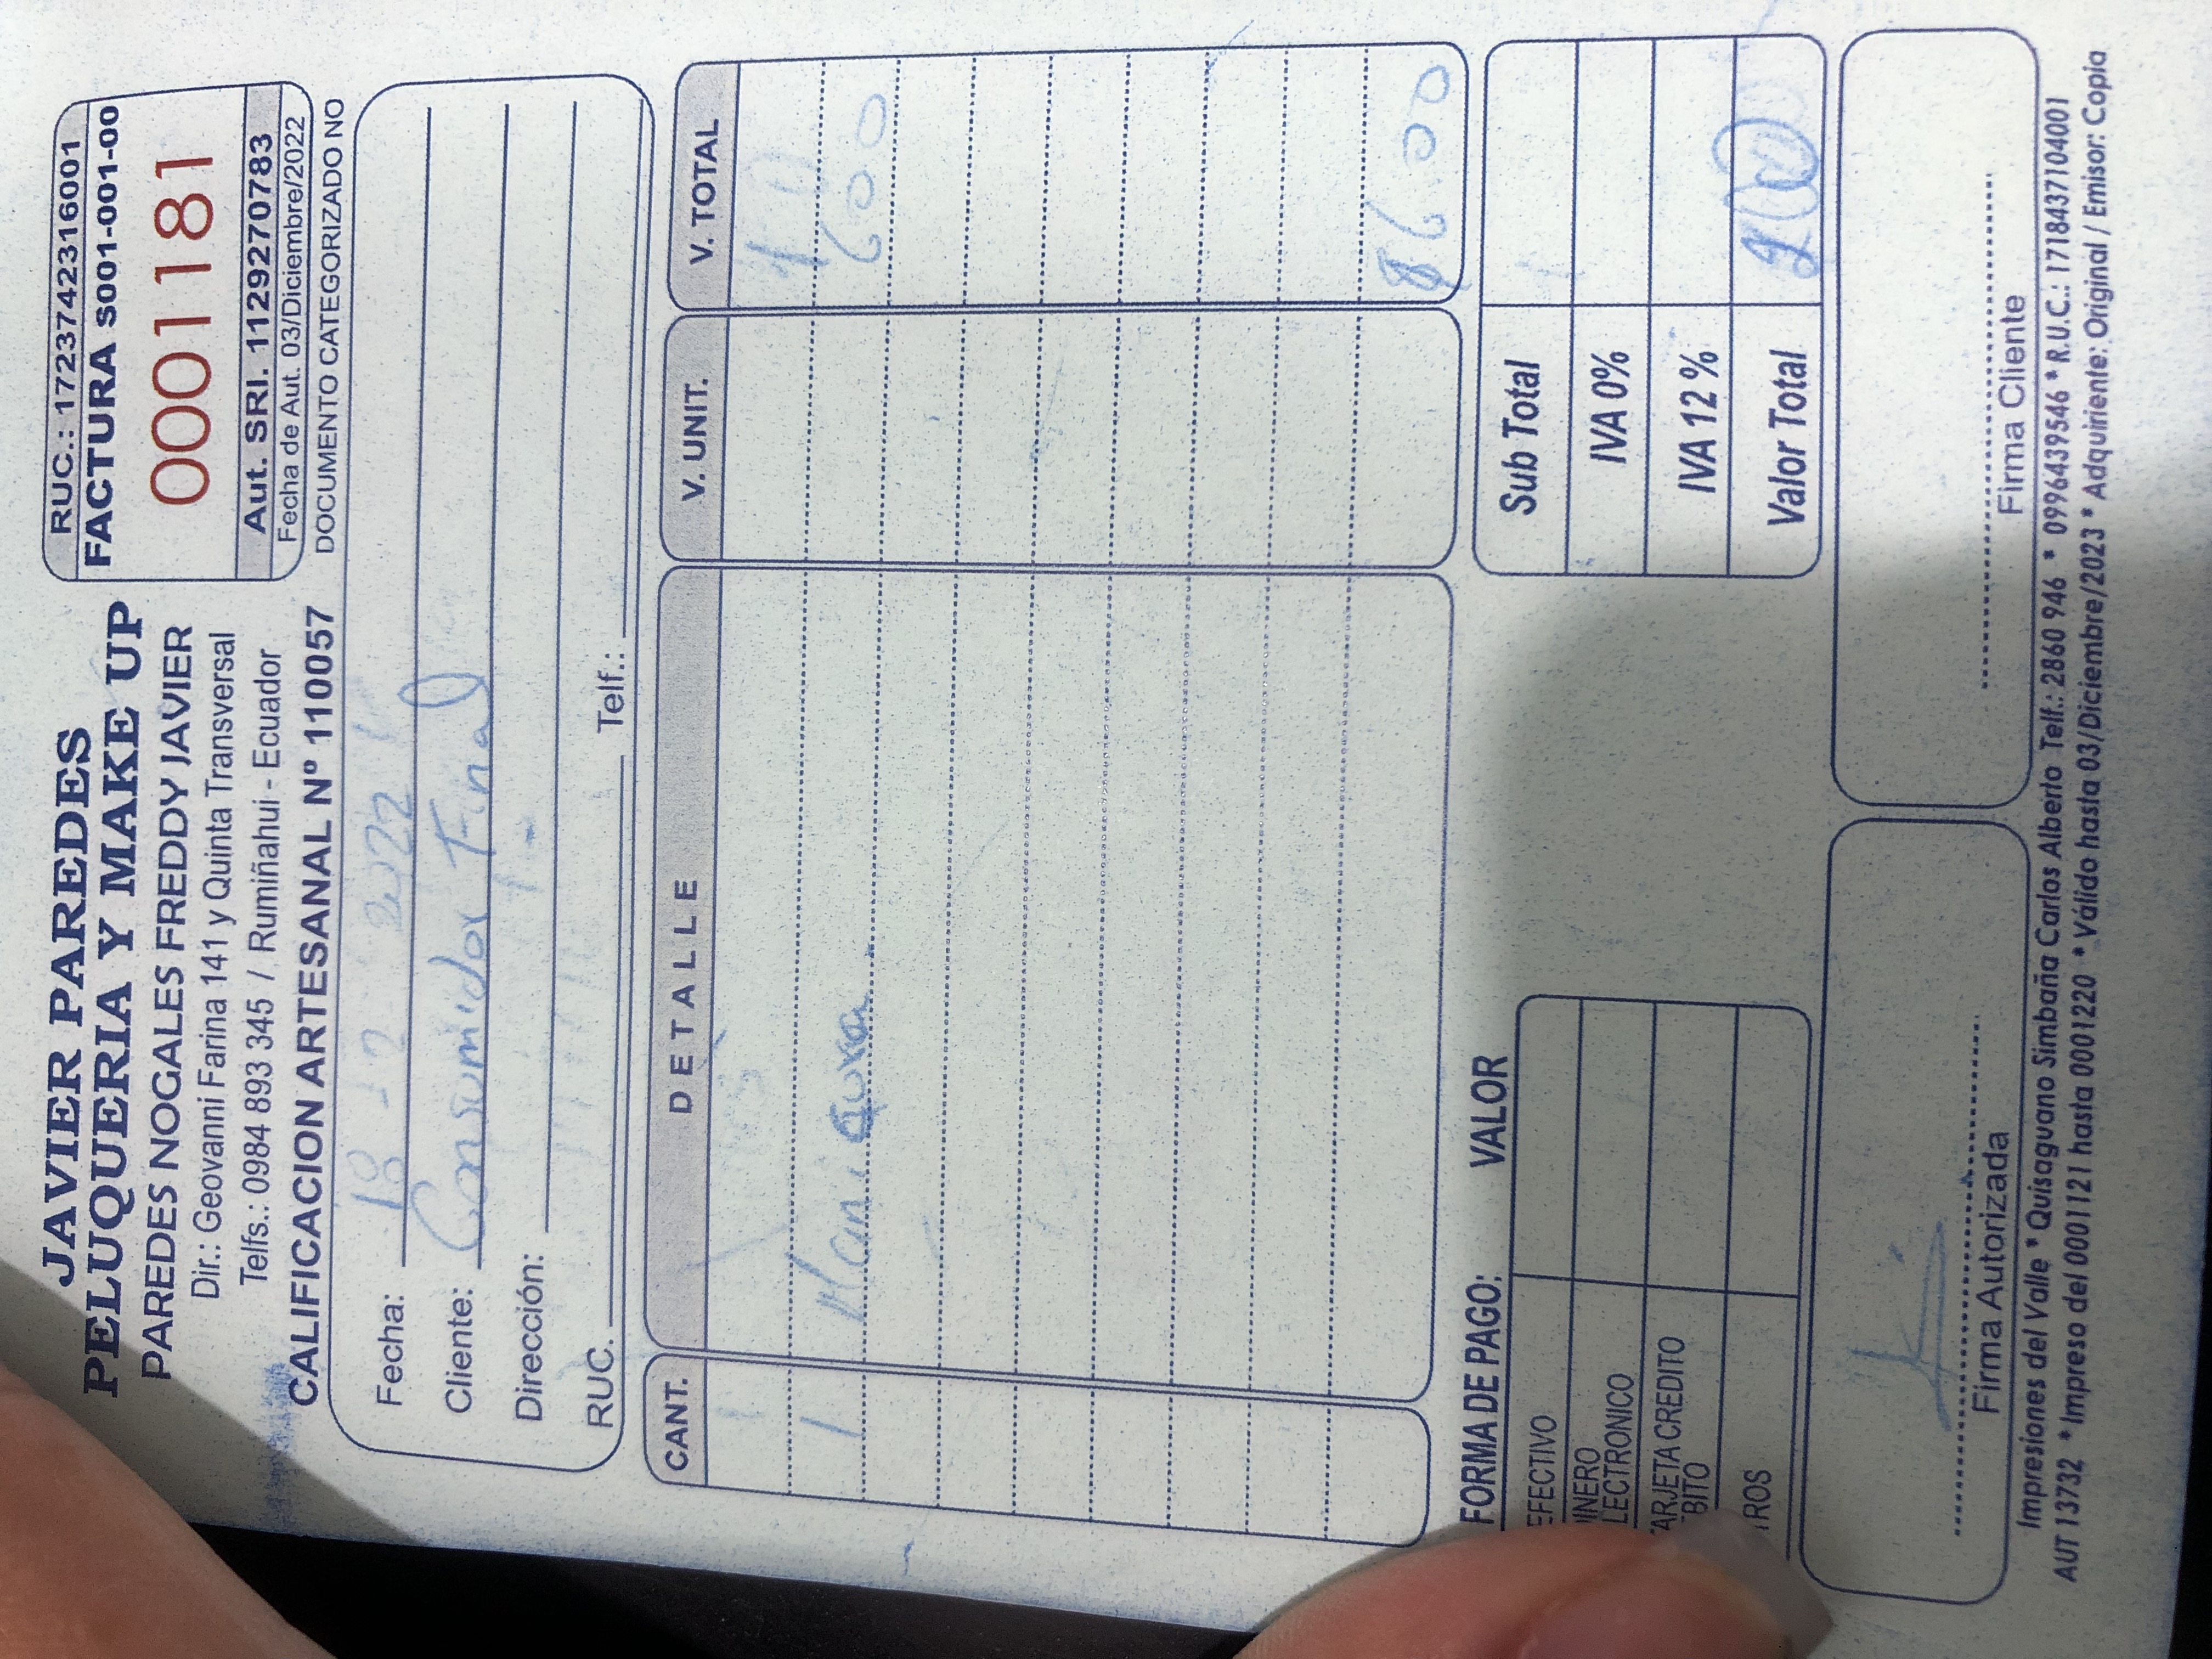 JAVIER PAREDES
PELUQUERIA Y MAKE UP
PAREDES NOGALES FREDDY JAVIER
Dir.: Geovanni Farina 141 y Quinta Transversal
Telfs.: 0984 893 345 / Rumiñahui - Ecuador
CALIFICACION ARTESANAL Nº 110057
RUC.: 1723742316001
FACTURA S001-001-00
0001181
Aut. SRI. 1129270783
Fecha de Aut. 03/Diciembre/2022
DOCUMENTO CATEGORIZADO NO
Fecha: 18 - 2 2022
Cliente: Consumidor Final
Dirección:
RUC. Telf.:
CANT. DETALLE V. UNIT. V. TOTAL
1
1 Maniqura. 6 00
6.00
FORMA DE PAGO: VALOR
EFECTIVO
INERO
LECTRONICO
ARJETA CREDITO
BITO
TROS
Sub Total
IVA 0%
IVA 12 %
Valor Total
Firma Autorizada
Firma Cliente
Impresiones del Valle * Quisaguano Simbaña Carlos Alberto Telf.: 2860 946 * 0996439546 * R.U.C.: 1718437104001
AUT 13732 * Impreso del 0001121 hasta 0001220 * Válido hasta 03/Diciembre/2023 * Adquiriente: Original / Emisor: Copia